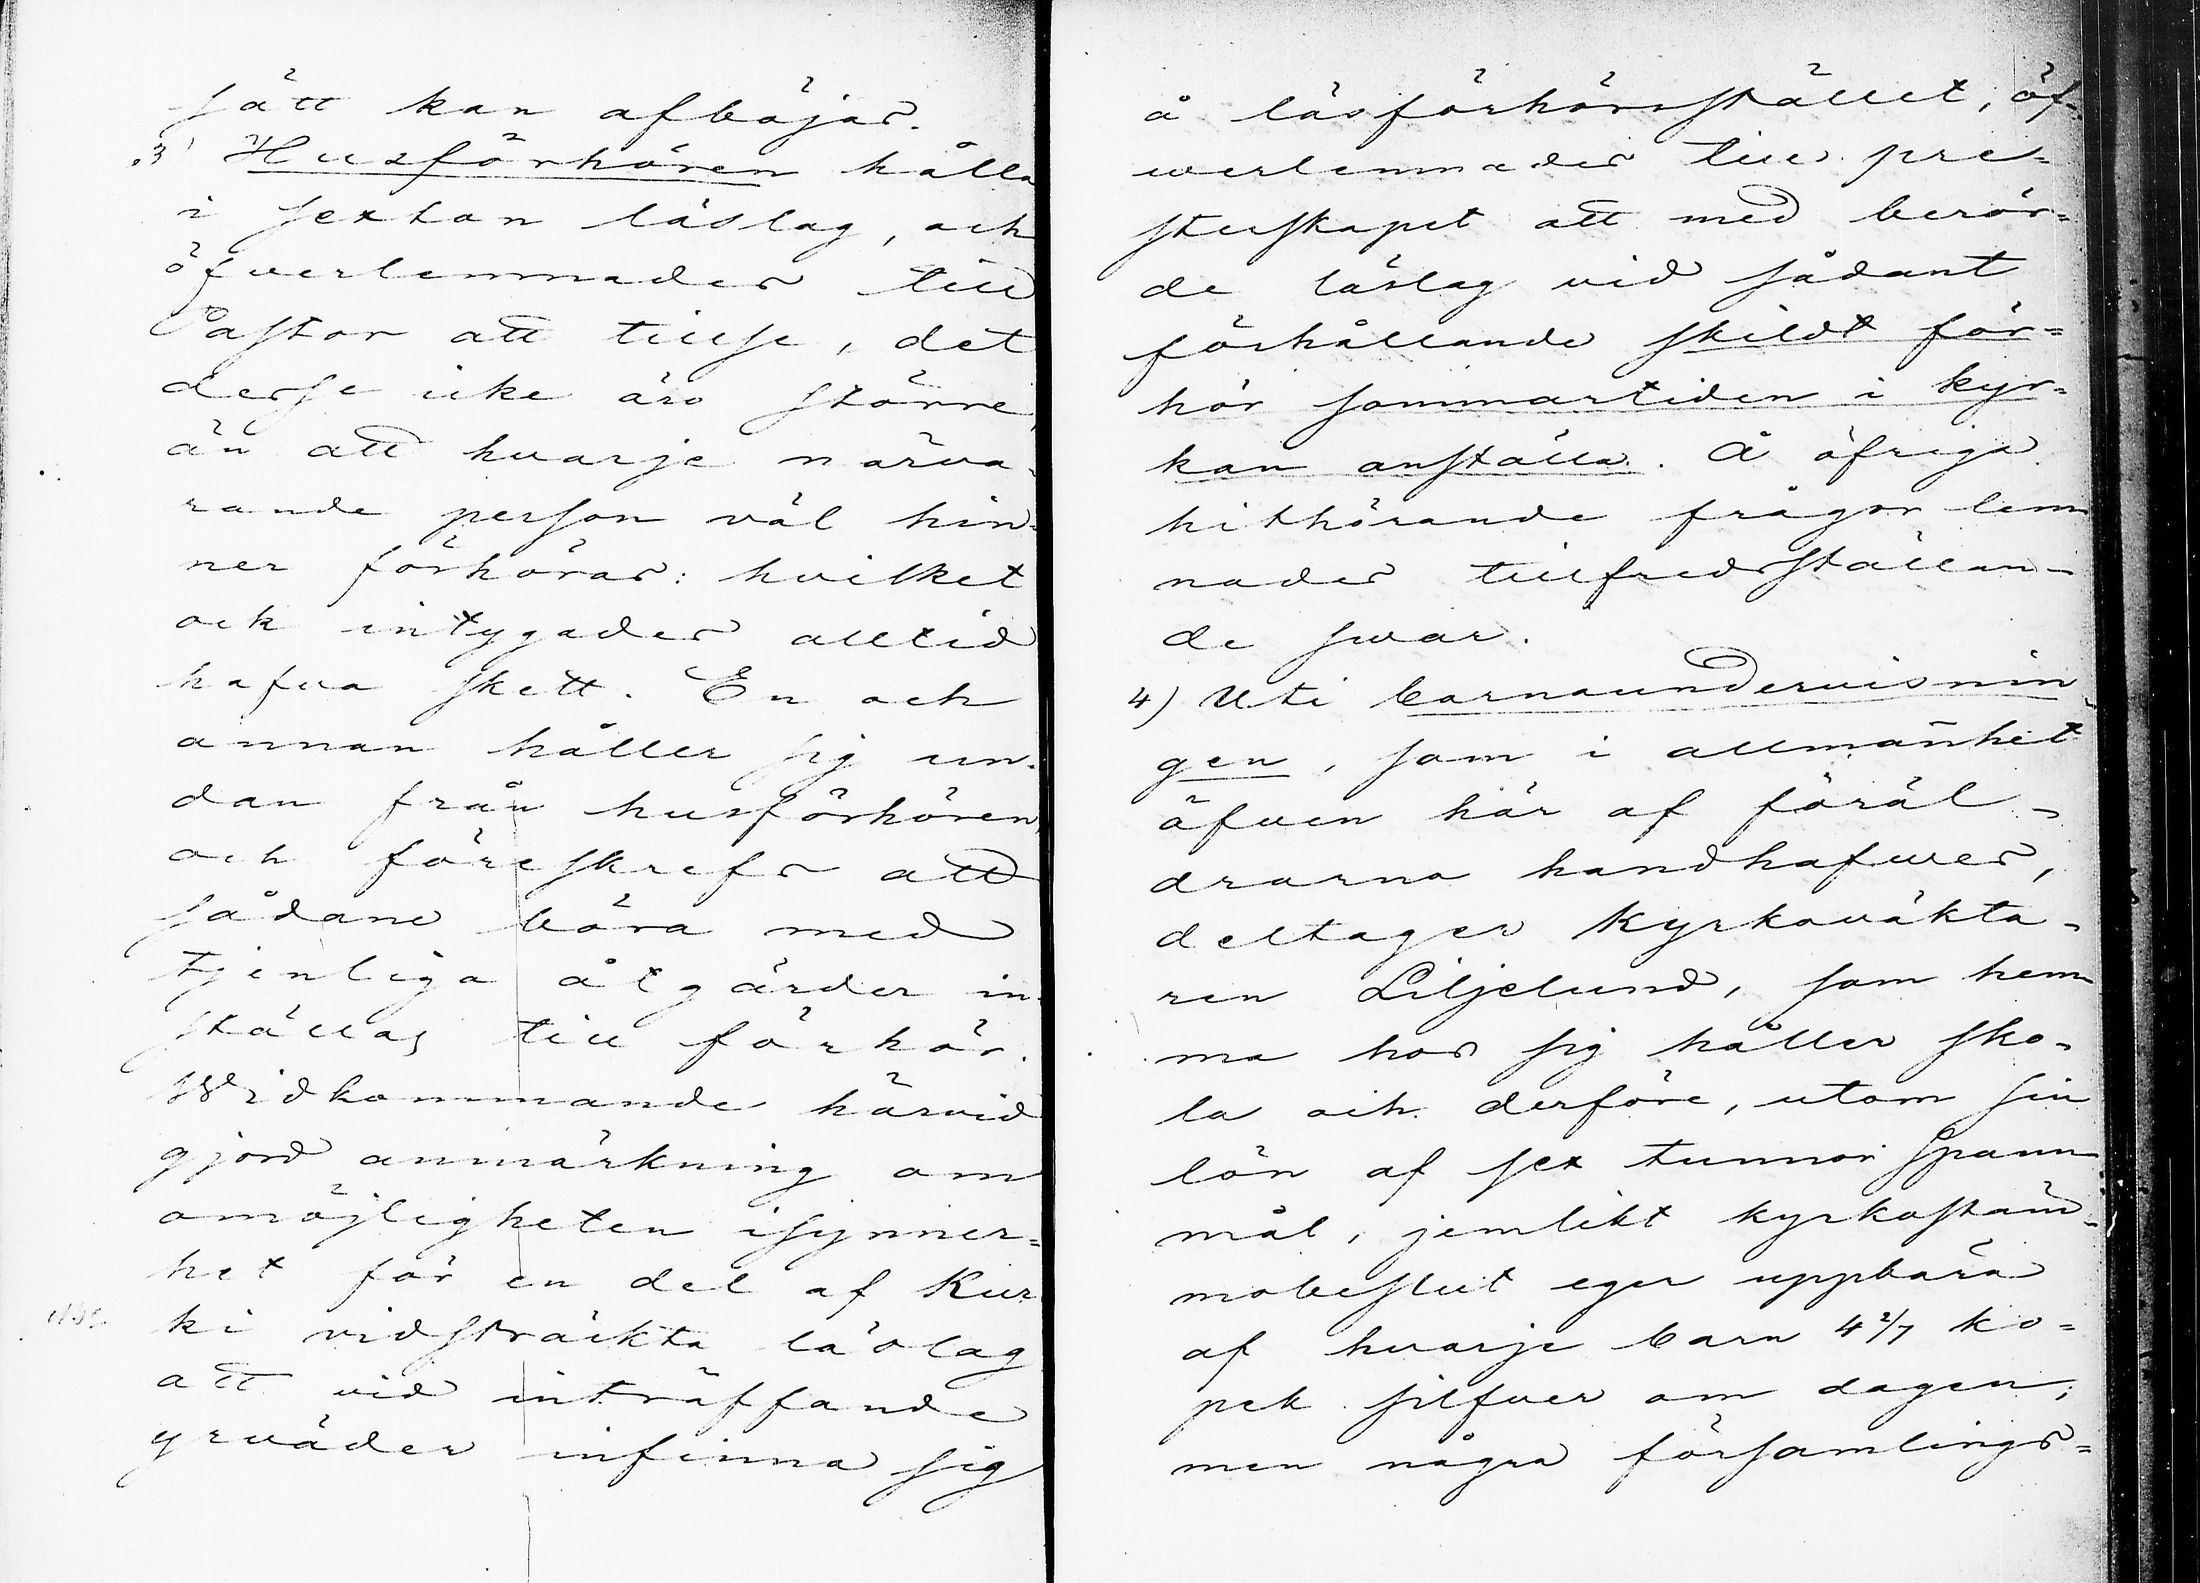 sätt kan afböjas.
3) Husförhören hålla
i sextan läslag, och
öfwerlemnades till
Pastor att tillse, det
desse icke äro större,
än att hvarje närva-
rande person väl hin-
ner förhöras: hvilket
ock intygades alltid
hafva skett. En och
annan håller sig un-
dan från husförhören,
och föreskrefs att
sådane böra med
tjenliga åtgärder in-
ställas till förhör.
Widkommande härvid
gjord anmärkning om
omöjligheten isynner=
het för en del af Kur
ki vidsträckta läslag
att vid inträffande
yrväder infinna sig
å läsförhörsstället, öf-
werlemnades till pre=
sterskapet att med berör=
de läslag vid sådant
förhållande skildt för=
hör sommartiden i kyr=
kan anställa. Å öfriga
hithörande frågor lem
nades tillfredsställan-
de swar.
4) Uti barnaundervisnin
gen, som i allmänhet
äfwen här af föräl-
drarna handhafwes,
deltager Kyrkoväkta-
ren Liljelund, som hem
ma hos sig håller sko-
la och derföre, utom sin
lön af sex tunnor Spann
mål, jemlikt kyrkostäm-
mobeslut eger uppbära
af hvarje barn 4 2/7 ko=
pek silfver om dagen;
men några församlings=